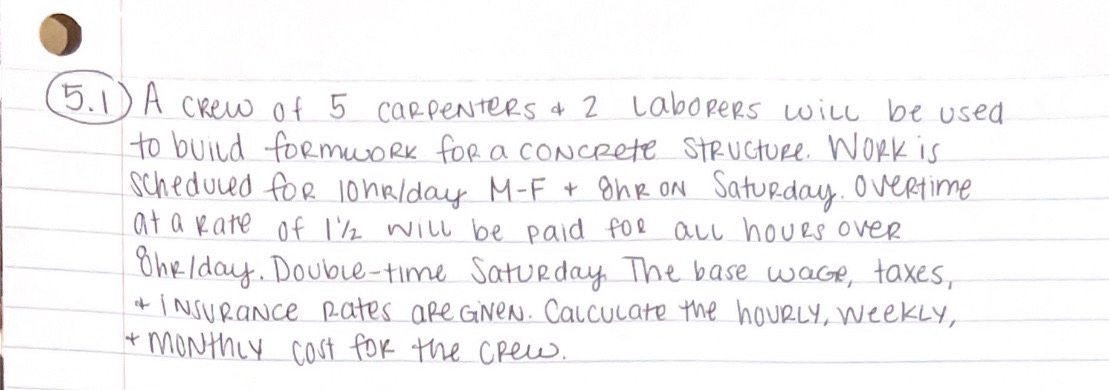 5.1) A crew of 5 carpenters & 2 laborers will be used
to build formwork for a concrete structure. Work is
scheduled for 10hr/day M-F + 8hr on Saturday. Overtime
at a rate of 1 1/2 will be paid for all hours over
8hr/day. Double-time Saturday. The base wage, taxes,
+ insurance rates are given. Calculate the hourly, weekly,
+ monthly cost for the crew.